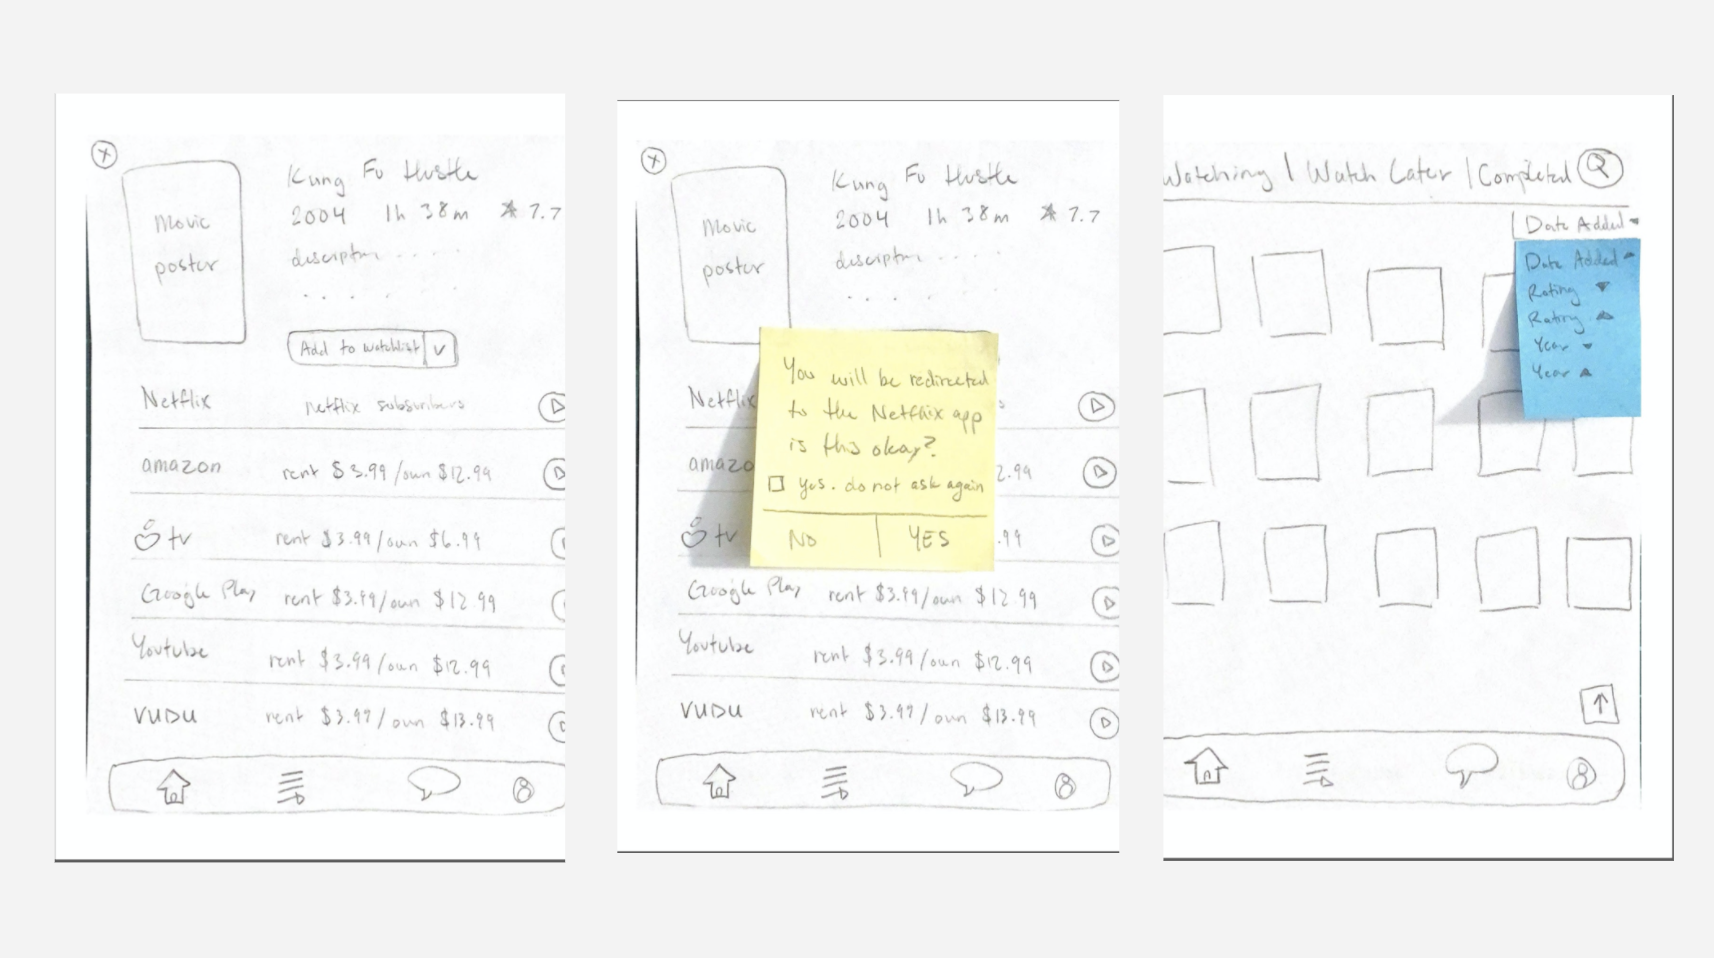 Kung Fu Hustle
2004 1h 38m ★ 7.7
Movie
poster
description . . . .
. . . .
Add to watchlist v
Netflix netflix subscribers
amazon rent $3.99/own $12.99
tv rent $3.99/own $6.99
Google Play rent $3.99/own $12.99
Youtube rent $3.99/own $12.99
VUDU rent $3.99/own $13.99
Kung Fu Hustle
2004 1h 38m ★ 7.7
Movie
poster
description . . . .
. . . .
You will be redirected
to the Netflix app
is this okay?
Yes. do not ask again
NO YES
Netflix s
amazo 2.99
tv .99
Google Play rent $3.99/own $12.99
Youtube rent $3.99/own $12.99
VUDU rent $3.99/own $13.99
Watching | Watch Later | Completed
Date Added ▾
Date Added ▴
Rating ▾
Rating ▴
Year ▾
Year ▴